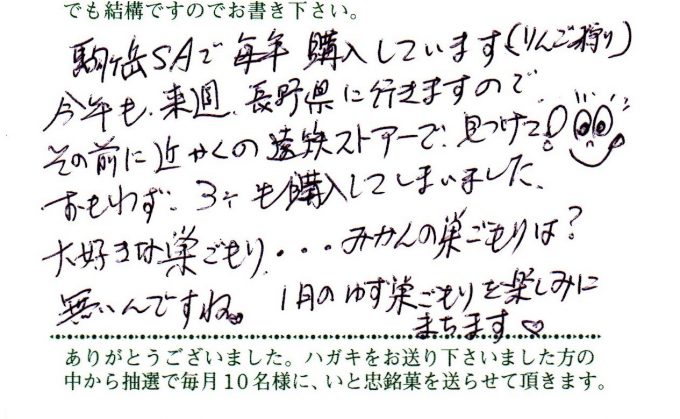 でも結構ですのでお書き下さい。
駒ヶ岳SAで毎年購入しています(りんご狩り)
今年も、来週、長野県に行きますので
その前に近かくの遠鉄ストアーで、見つけて!
おもわず、3ヶも購入してしまいました。
大好きな巣ごもり・・・みかんの巣ごもりは?
無いんですね。 1月のゆず巣ごもりを楽しみに
まちます♡
ありがとうございました。ハガキをお送り下さいました方の
中から抽選で毎月10名様に、いと忠銘菓を送らせて頂きます。